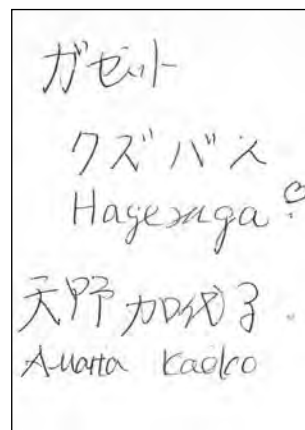 ガゼット
クズバス
Hagesaga
天野 加代子
Kaoko